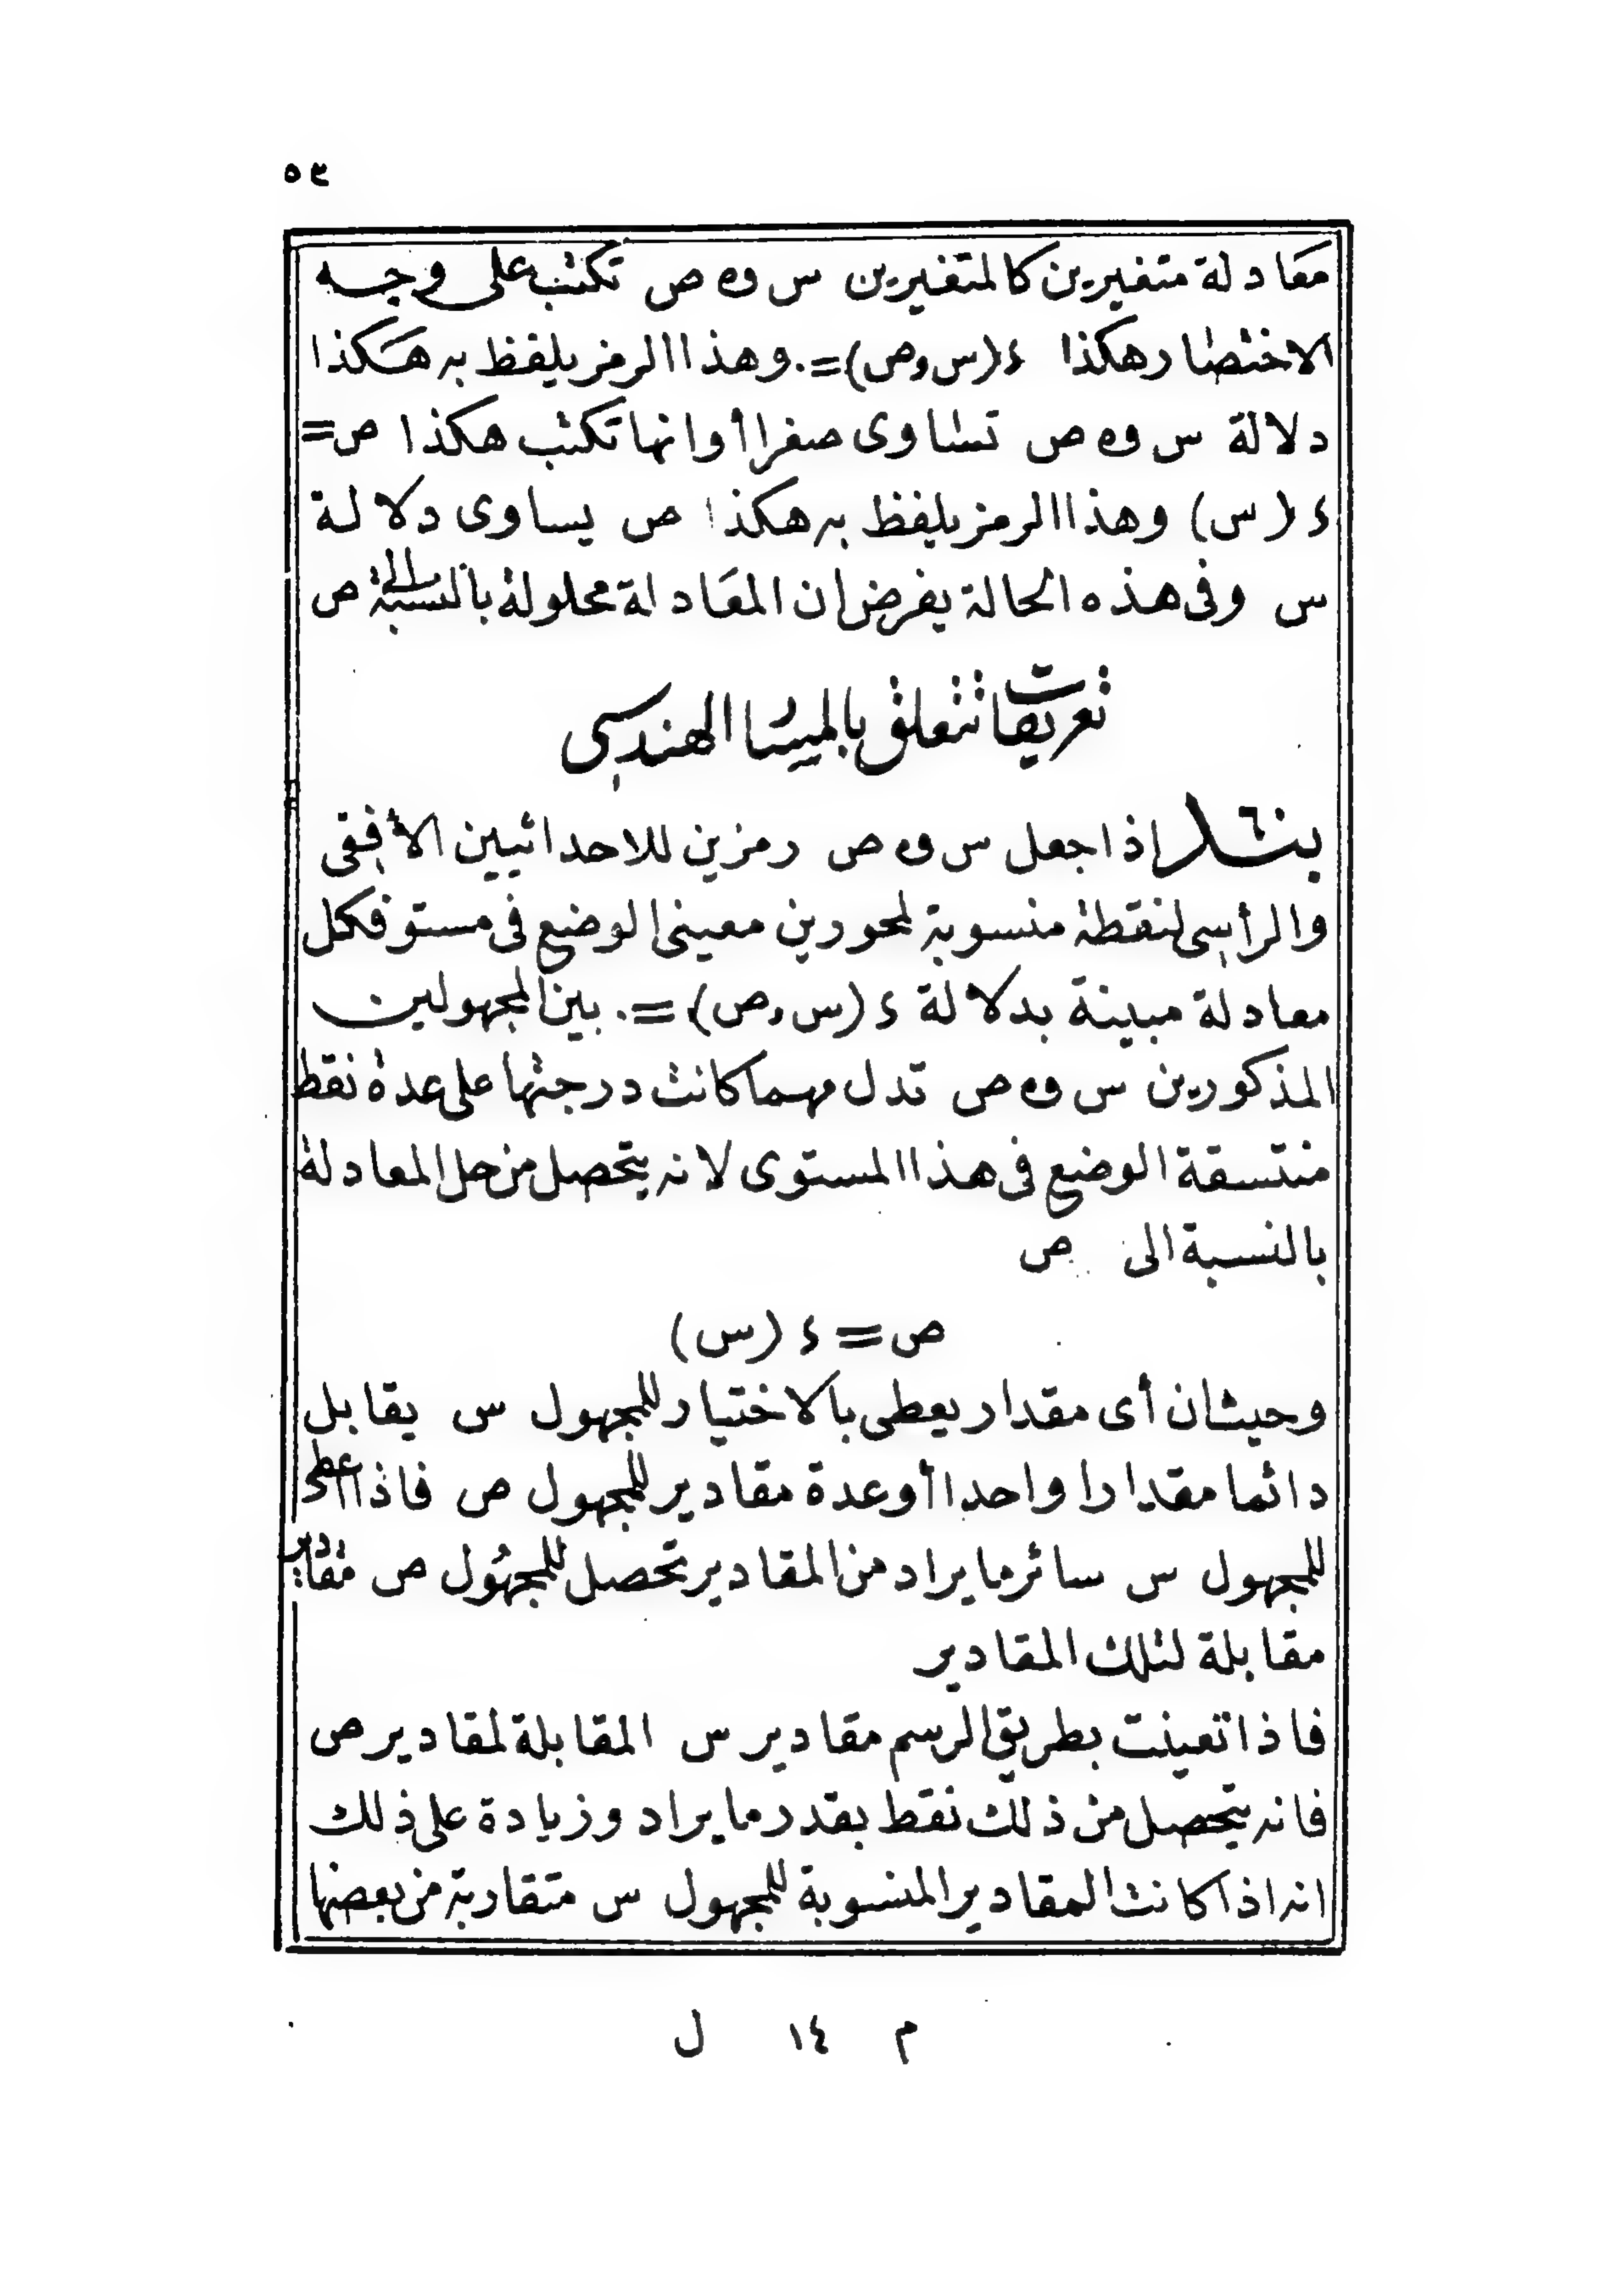 ٥٣
معادلة متغيرين كالمتغيرين س و ص تكتب على وجه
الاختصار هكذا ء (س و ص) = ٠ وهذا الرمز يلفظ به هكذا
دلالة س و ص تساوى صفرا أو انها تكتب هكذا ص =
ء (س) وهذا الرمز يلفظ به هكذا ص يساوى دلالة
س وفى هذه الحالة يفرض ان المعادلة محلولة بالنسبة الى ص
تعريفات تتعلق بالميسا الهندسى
بند ٦ اذا جعل س و ص رمزين للاحداثيين الأفقى
والرأسى لنقطة منسوبة لمحورين معينى الوضع فى مستو فكل
معادلة مبينة بدلالة ء (س و ص) = ٠ بين المجهولين
المذكورين س و ص تدل مهما كانت درجتها على عدة نقط
منتسقة الوضع فى هذا المستوى لانه يتحصل من حل المعادلة
بالنسبة الى ص
ص = ء (س)
وحيث ان أى مقدار يعطى بالاختيار للمجهول س يقابل
دائما مقدارا واحدا أو عدة مقادير للمجهول ص فاذا اعطى
للمجهول س سائر ما يراد من المقادير تحصل للمجهول ص مقادير
مقابلة لتلك المقادير
فاذا تعينت بطريق الرسم مقادير س المقابلة لمقادير ص
فانه يتحصل من ذلك نقط بقدر ما يراد وزيادة على ذلك
انه اذا كانت المقادير المنسوبة للمجهول س متقاربة من بعضها
م ١٤ ل